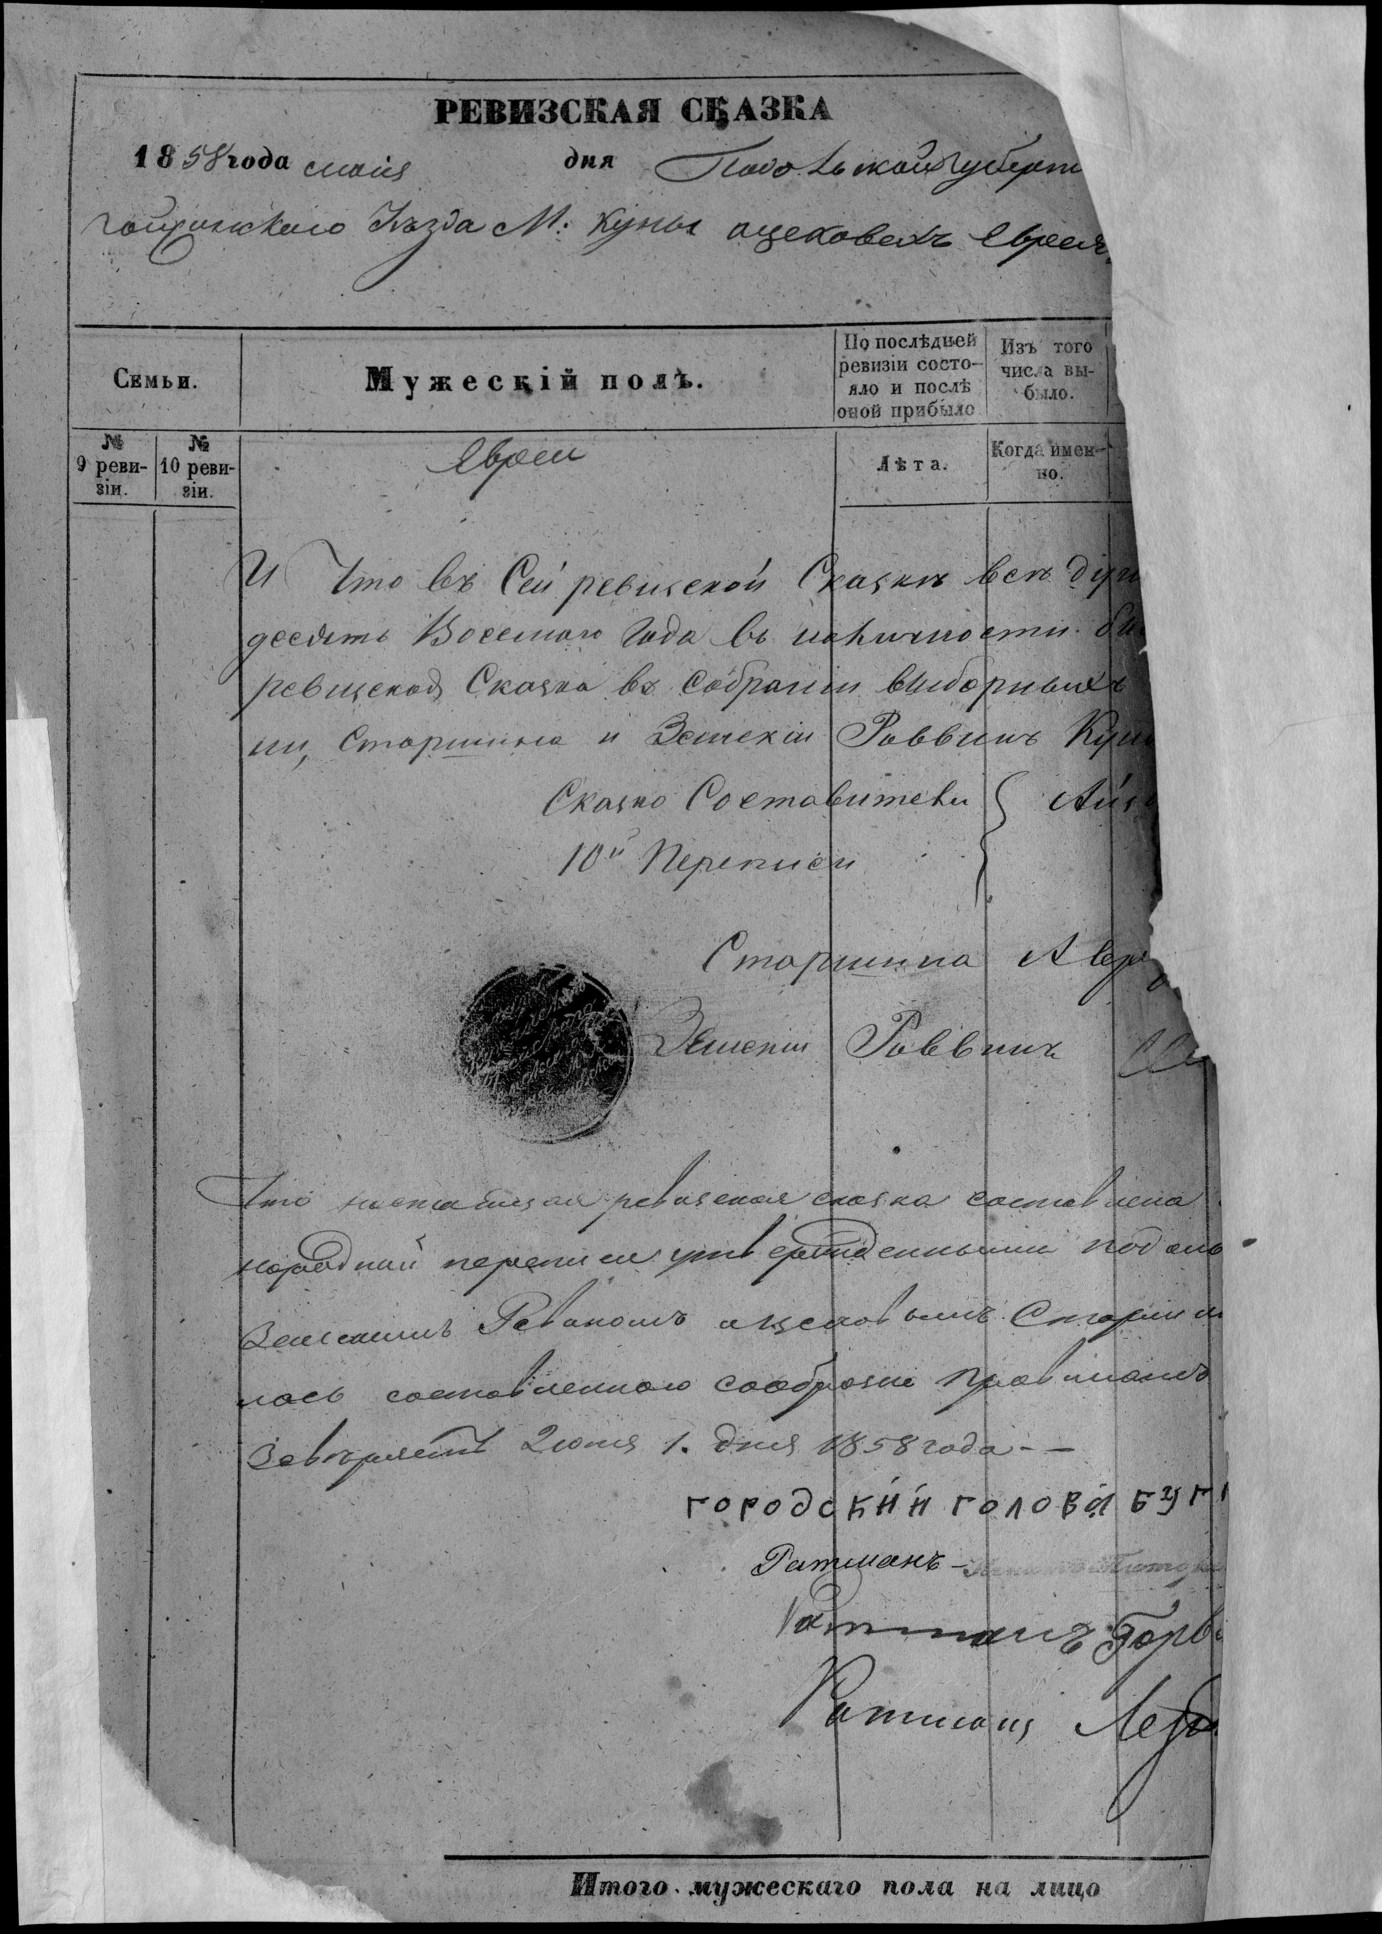 РЕВИЗСКАЯ СКАЗКА
1858 года мая дня Подольской Губерн
Гайсинскаго Уѣзда М: Куны цеховыхъ Евреев
Семьи.
Мужескій полъ.
По послѣдней ревизіи состояло и послѣ оной прибыло
Изъ того числа выбыло.
№ 9 ревизіи.
№ 10 ревизіи.
Евреи
Лѣта.
Когда именно.
И Что въ Сей ревизской Сказкѣ всѣ ду
десять Восемого Года въ наличности
ревизская Сказка въ собраніи выборныхъ
ни, Старшина и Земскій Раввинъ Кун
Сказко Составители
10й Переписи
Старшина Авр
Земскій Раввинъ
Что настоящая ревизская сказка составлена
народной переписи утвержденными
Земскимъ Раввиномъ цеховымъ Старшин
лось составленною сообразно правиламъ
Завѣряетъ Июня 1. дня 1858 года
Городскйй голова
Ратманъ
Ратманъ
Ратманъ
Итого мужескаго пола на лицо